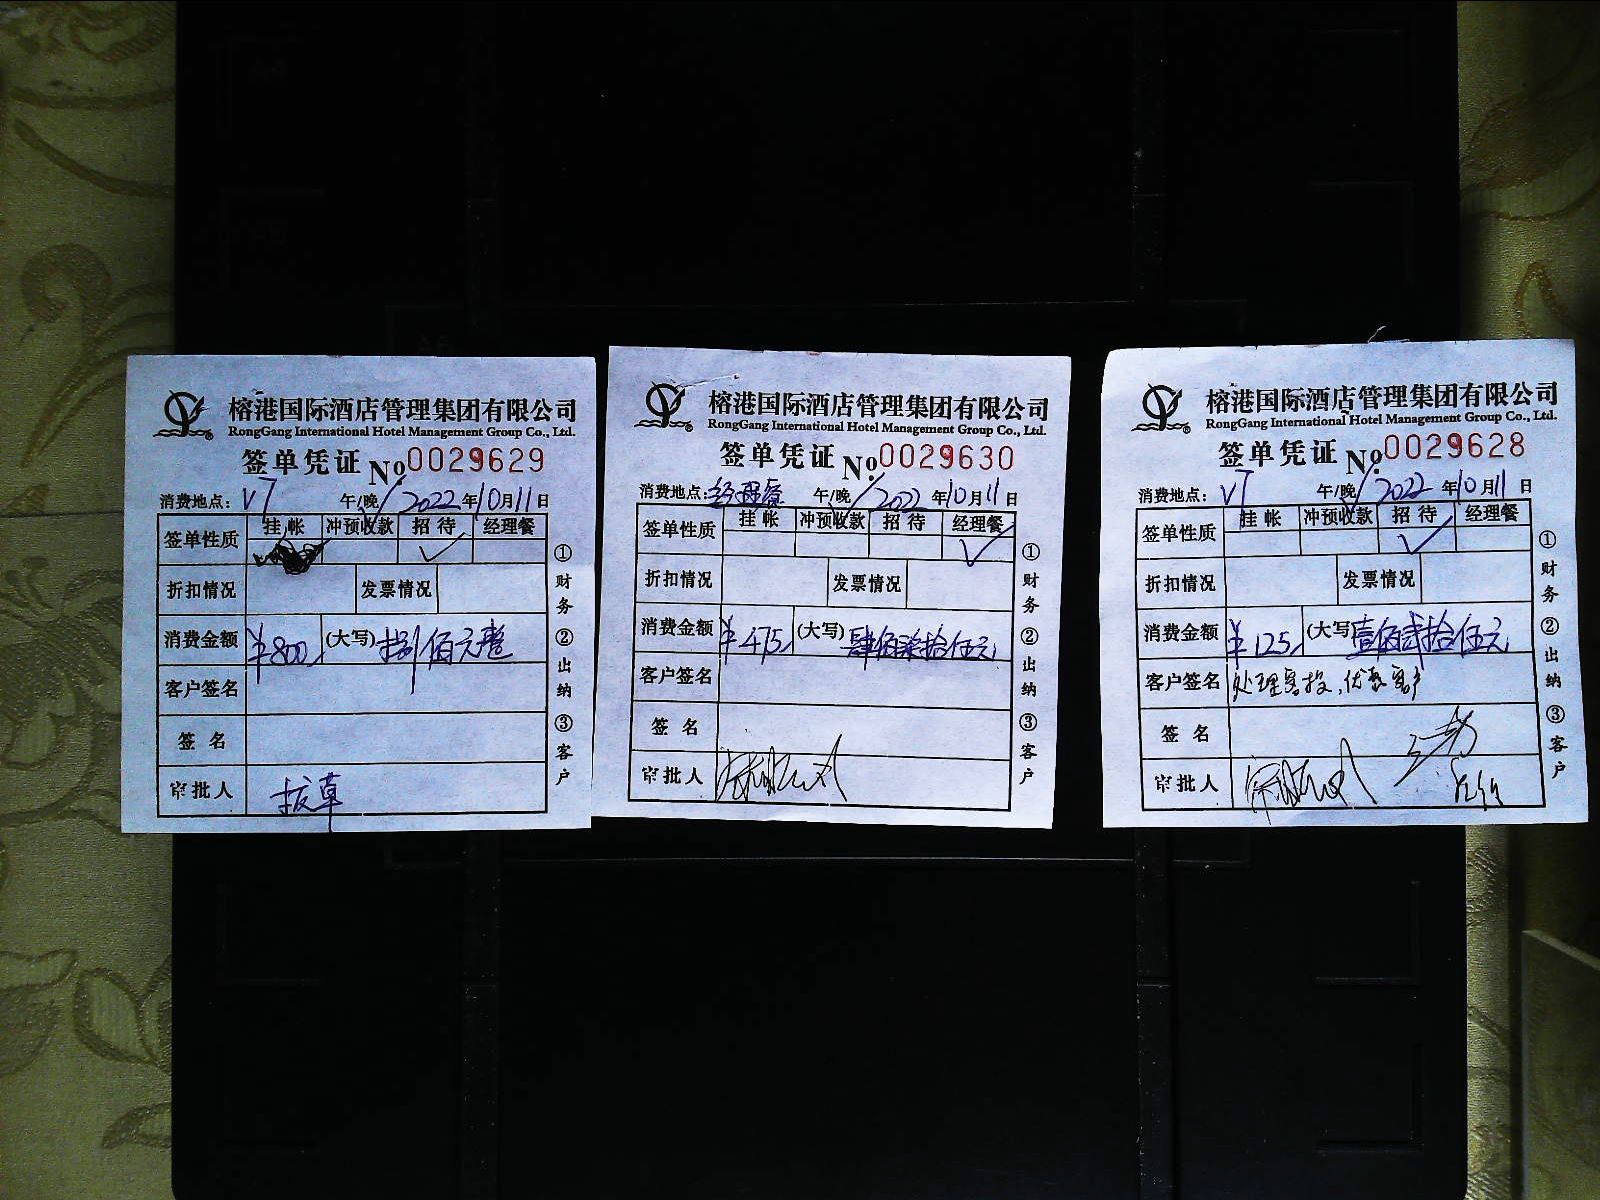 榕港国际酒店管理集团有限公司
RongGang International Hotel Management Group Co., Ltd.
签单凭证 No.0029629
消费地点: V7 午/晚 2022年10月11日
签单性质 挂帐 冲预收款 招待 经理餐
折扣情况 发票情况
消费金额 ¥800 (大写) 捌佰元整
客户签名
签名
审批人 拔草
①财务 ②出纳 ③客户
榕港国际酒店管理集团有限公司
RongGang International Hotel Management Group Co., Ltd.
签单凭证 No.0029630
消费地点: 经理餐 午/晚 2022年10月11日
签单性质 挂帐 冲预收款 招待 经理餐
折扣情况 发票情况
消费金额 ¥475 (大写) 肆佰柒拾伍元
客户签名
签名
审批人
①财务 ②出纳 ③客户
榕港国际酒店管理集团有限公司
RongGang International Hotel Management Group Co., Ltd.
签单凭证 No.0029628
消费地点: V7 午/晚 2022年10月11日
签单性质 挂帐 冲预收款 招待 经理餐
折扣情况 发票情况
消费金额 ¥125 (大写) 壹佰贰拾伍元
客户签名 处理客投,优惠客户
签名
审批人
①财务 ②出纳 ③客户